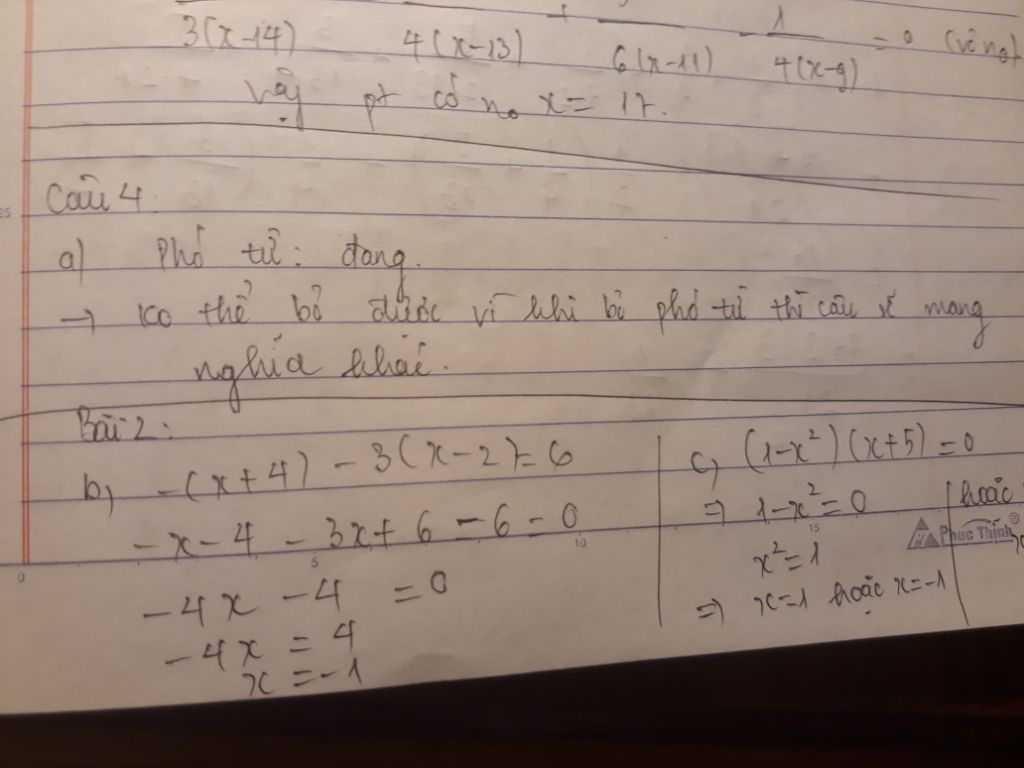 3(x-14) 4(x-13) + 6(x-11) - 1/4(x-9) = 0 (vô no)
Vậy pt có no x = 17.
25
Câu 4.
a) Phó từ: đang.
→ ko thể bỏ được vì khi bỏ phó từ thì câu sẽ mang
nghĩa khác.
Bài 2:
b) -(x+4) - 3(x-2) = 6
-x - 4 - 3x + 6 - 6 = 0
-4x - 4 = 0
-4x = 4
x = -1
c) (1-x²)(x+5) = 0
⇒ 1-x² = 0 | hoặc
x² = 1
⇒ x=1 hoặc x=-1
Phuc Thinh ®
0 5 10 15